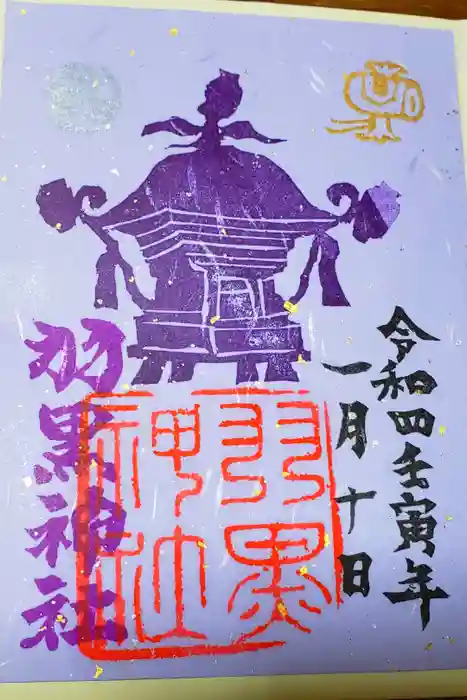 令和四壬寅年
一月十日
羽黒神社
羽黒
神社